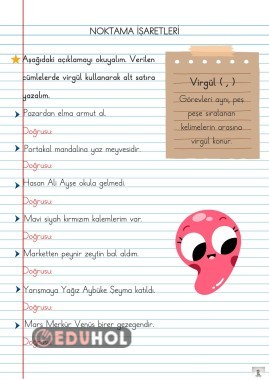 NOKTAMA İŞARETLERİ
Aşağıdaki açıklamayı okuyalım. Verilen
cümlelerde virgül kullanarak alt satıra
yazalım.
Virgül ( , )
Görevleri aynı, peş
peşe sıralanan
kelimelerin arasına
virgül konur.
Pazardan elma armut al.
Doğrusu:
Portakal mandalina yaz meyvesidir.
Doğrusu:
Hasan Ali Ayşe okula gelmedi.
Doğrusu:
Mavi siyah kırmızım kalemlerim var.
Doğrusu:
Marketten peynir zeytin bal aldım.
Doğrusu:
Yarışmaya Yağız Aybüke Şeyma katıldı.
Doğrusu:
Mars Merkür Venüs birer gezegendir.
Doğrusu:
EDUHOL